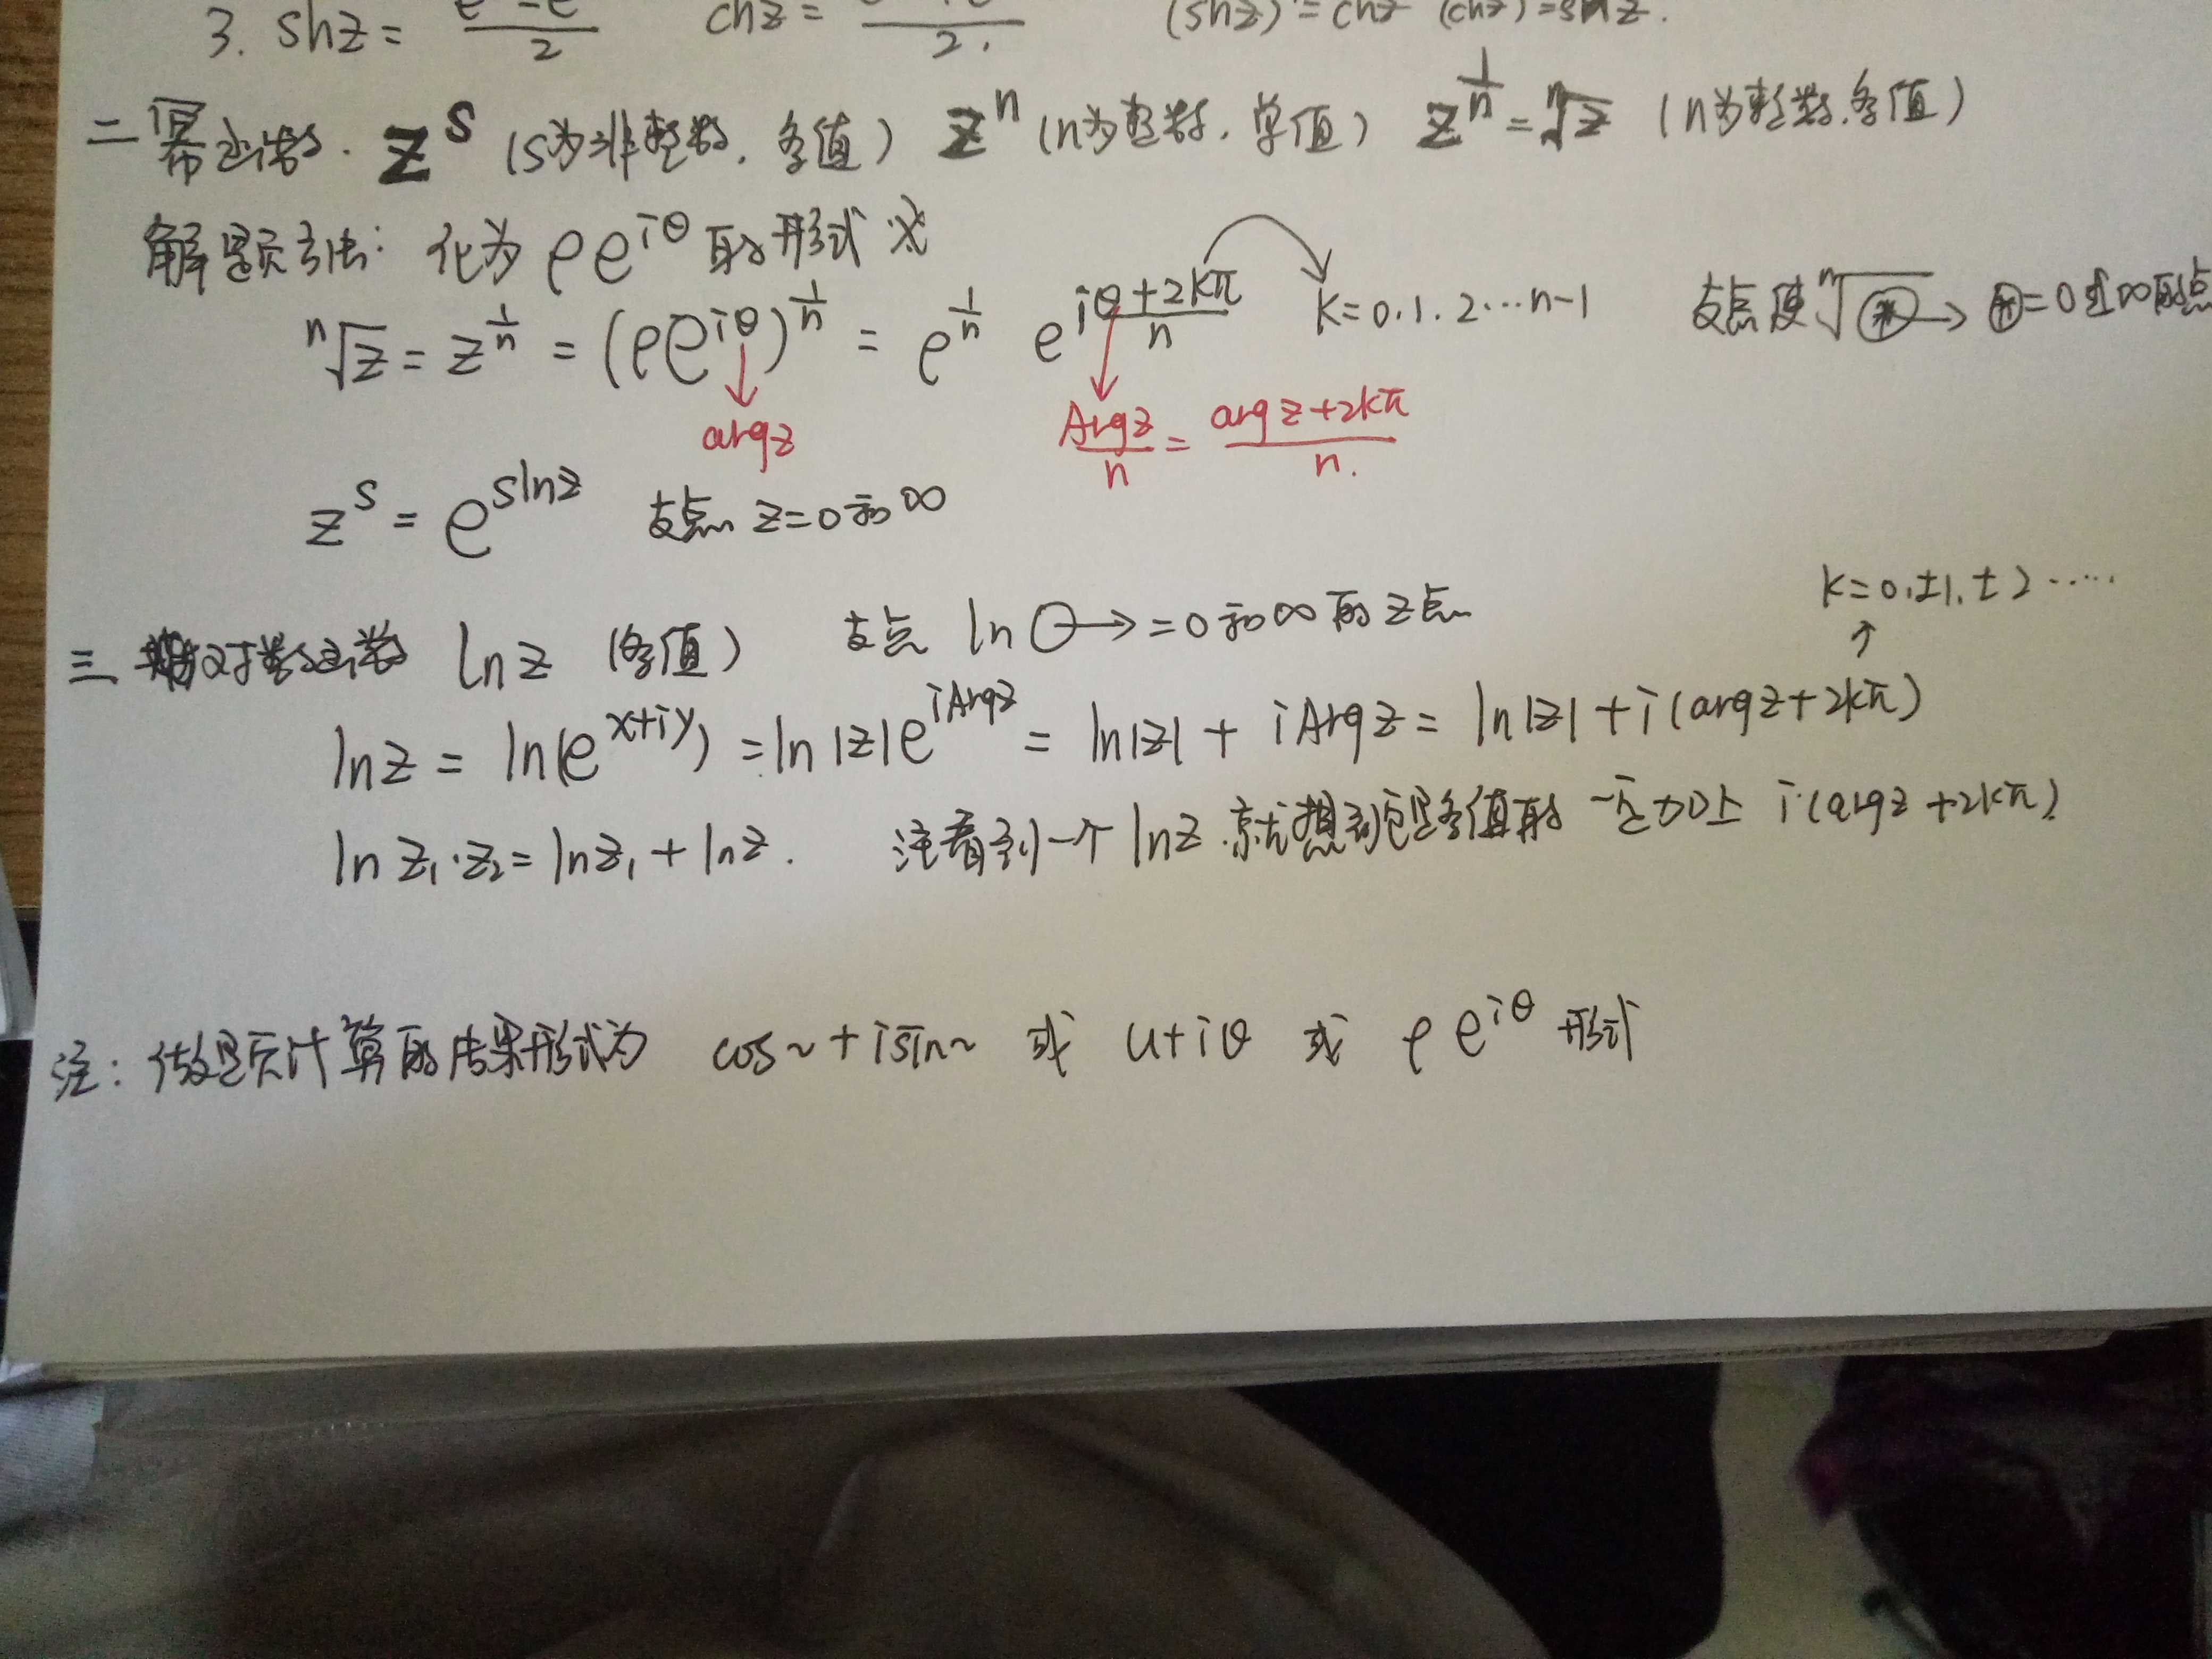 3. shz = e - e / 2 chz = / 2. (shz)' = chz (chz)' = shz.
二 幂函数. z^s (s为非整数, 多值) z^n (n为整数, 单值) z^{1/n} = ⁿ√z (n为整数, 多值)
解题方法: 化为 ρe^{iθ} 的形式 ※
ⁿ√z = z^{1/n} = (ρe^{iθ})^{1/n} = ρ^{1/n} e^{i(θ+2kπ)/n} k=0.1.2…n-1 支点 使 ⁿ√⊛ → ⊛=0或∞的点
argz Argz/n = (argz+2kπ)/n.
z^s = e^{slnz} 支点 z=0和∞
k=0.±1.±2……
三 对数函数 lnz (多值) 支点 ln○→=0和∞的z点
lnz = ln(e^{x+iy}) = ln|z|e^{iArgz} = ln|z| + iArgz = ln|z| + i(argz+2kπ)
lnz₁·z₂ = lnz₁ + lnz. 注看到一个lnz.就想到它是多值的 一定加上 i(argz+2kπ)
注: 做题计算的结果形式为 cos~+isin~ 或 u+iθ 或 ρe^{iθ} 形式